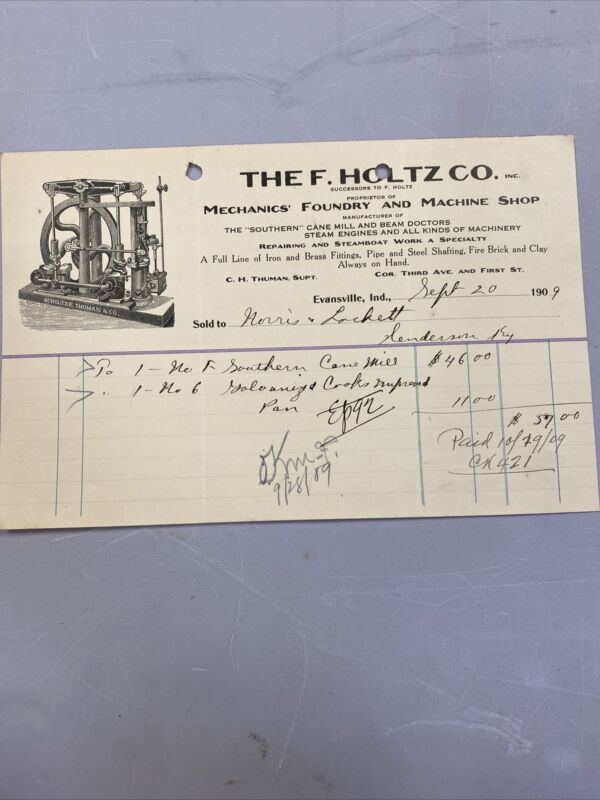 THE F. HOLTZ CO. INC.
SUCCESSORS TO F. HOLTZ
PROPRIETOR OF
MECHANICS' FOUNDRY AND MACHINE SHOP
MANUFACTURER OF
THE "SOUTHERN" CANE MILL AND BEAM DOCTORS
STEAM ENGINES AND ALL KINDS OF MACHINERY
REPAIRING AND STEAMBOAT WORK A SPECIALTY
A Full Line of Iron and Brass Fittings, Pipe and Steel Shafting, Fire Brick and Clay
Always on Hand.
C. H. THUMAN. SUPT. COR. THIRD AVE. AND FIRST ST.
SCHULTZE, THUMAN & CO.
Evansville, Ind., Sept 20 1909
Sold to Norris & Lockett
Henderson Ky
To 1 - No F Southern Cane Mill $46 00
" 1 - No 6 Galvanized Cooks Improved
Pan 11 00
$ 57 00
Paid 10/29/09
CK 421
OK
9/28/09